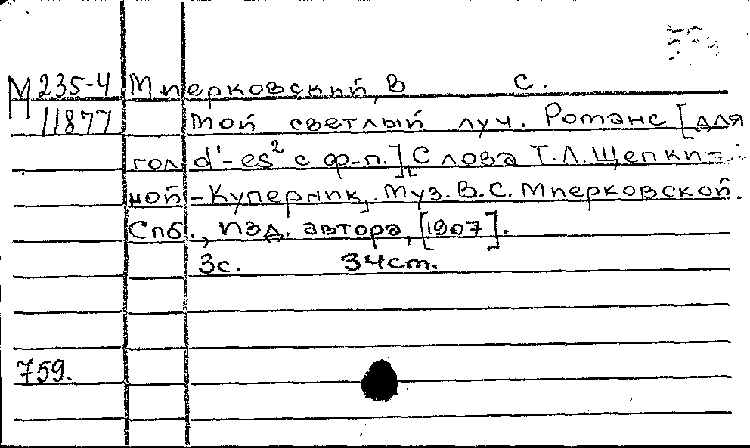 М 235-4 Мперковский, В С.
11877 Мой светлый луч. Романс [для
гол d'-es² с ф-п.] [Слова Т.Л. Щепки-
ной-Куперник]. Муз. В.С. Мперковской.
Спб., изд. автора, [1907].
3с. 34см.
759.